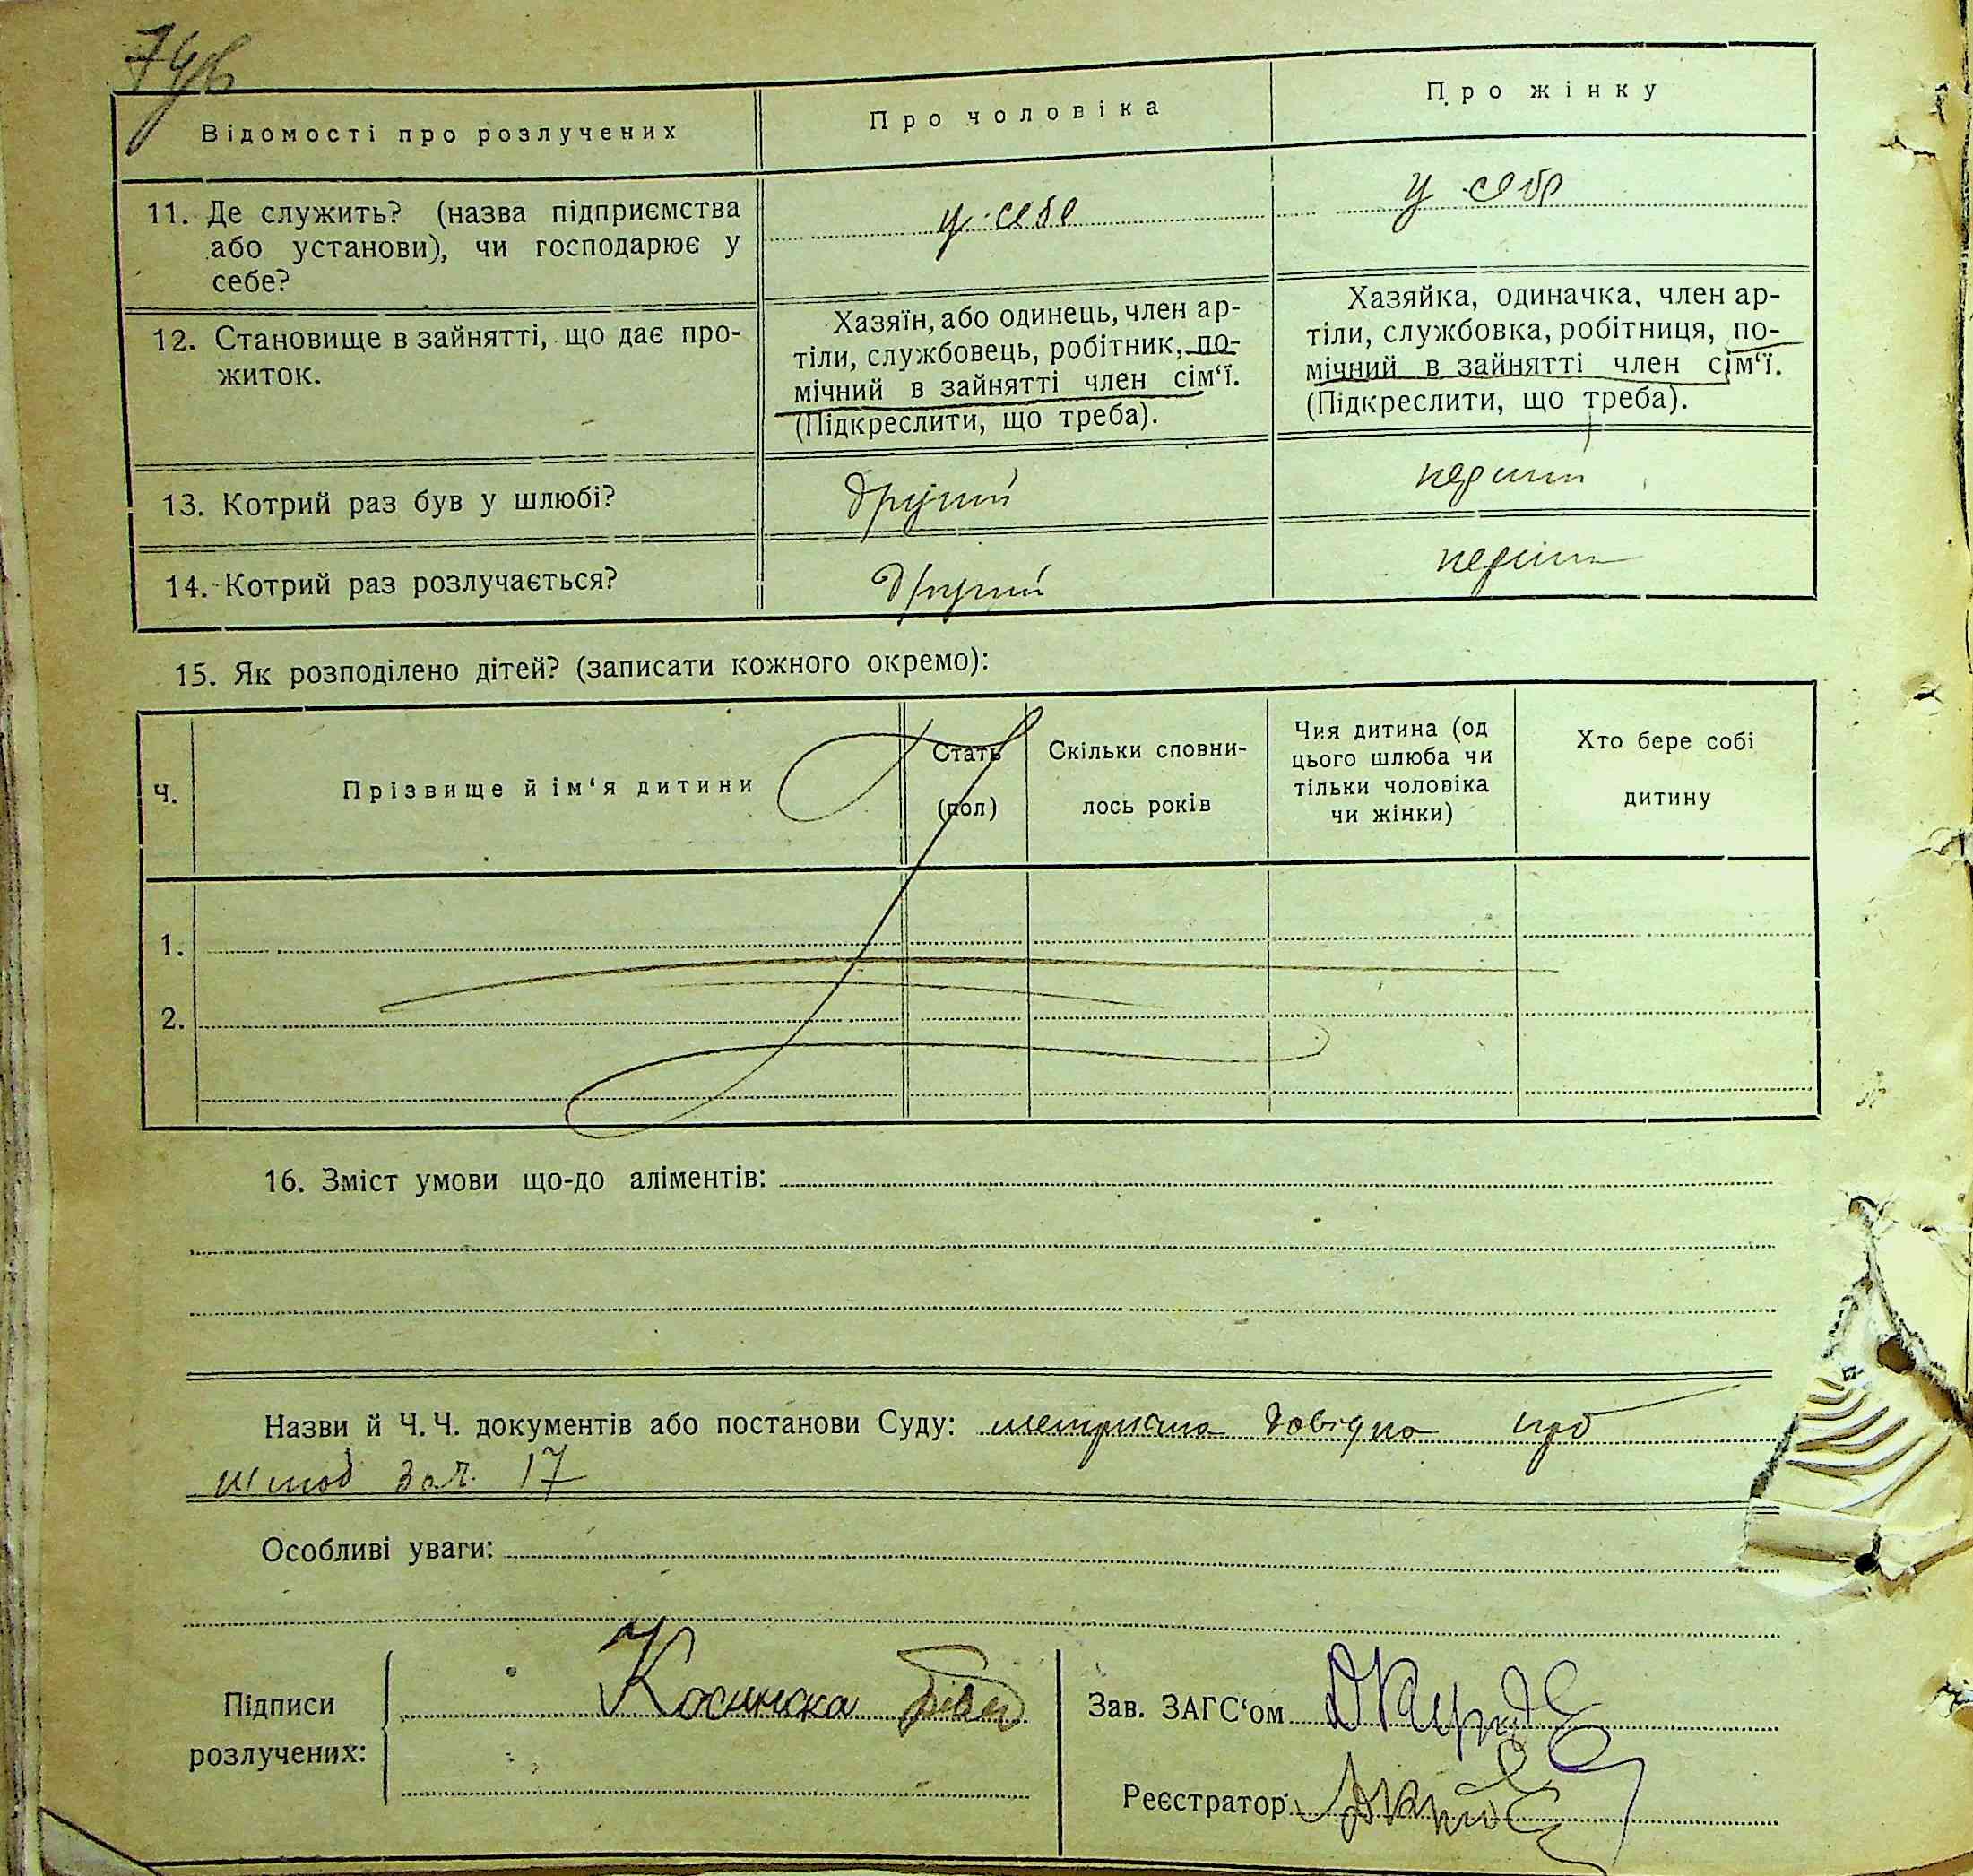 Відомості про розлучених
Про чоловіка
Про жінку
11. Де служить? (назва підприємства
або установи), чи господарює у
себе?
у себе
у себе
12. Становище в зайнятті, що дає про-
житок.
Хазяїн, або одинець, член ар-
тіли, службовець, робітник, по-
мічний в зайнятті член сім'ї.
(Підкреслити, що треба).
Хазяйка, одиначка, член ар-
тіли, службовка, робітниця, по-
мічний в зайнятті член сім'ї.
(Підкреслити, що треба).
13. Котрий раз був у шлюбі?
другий
перший
14. Котрий раз розлучається?
другий
перший
15. Як розподілено дітей? (записати кожного окремо):
Ч.
Прізвище й ім'я дитини
Стать
(пол)
Скільки сповни-
лось років
Чия дитина (од
цього шлюба чи
тільки чоловіка
чи жінки)
Хто бере собі
дитину
1.
2.
16. Зміст умови що-до аліментів:
Назви й Ч. Ч. документів або постанови Суду: метрична довідка про
шлюб за ч. 17
Особливі уваги:
Підписи
розлучених:
Косинска
Зав. ЗАГС'ом
Реєстратор